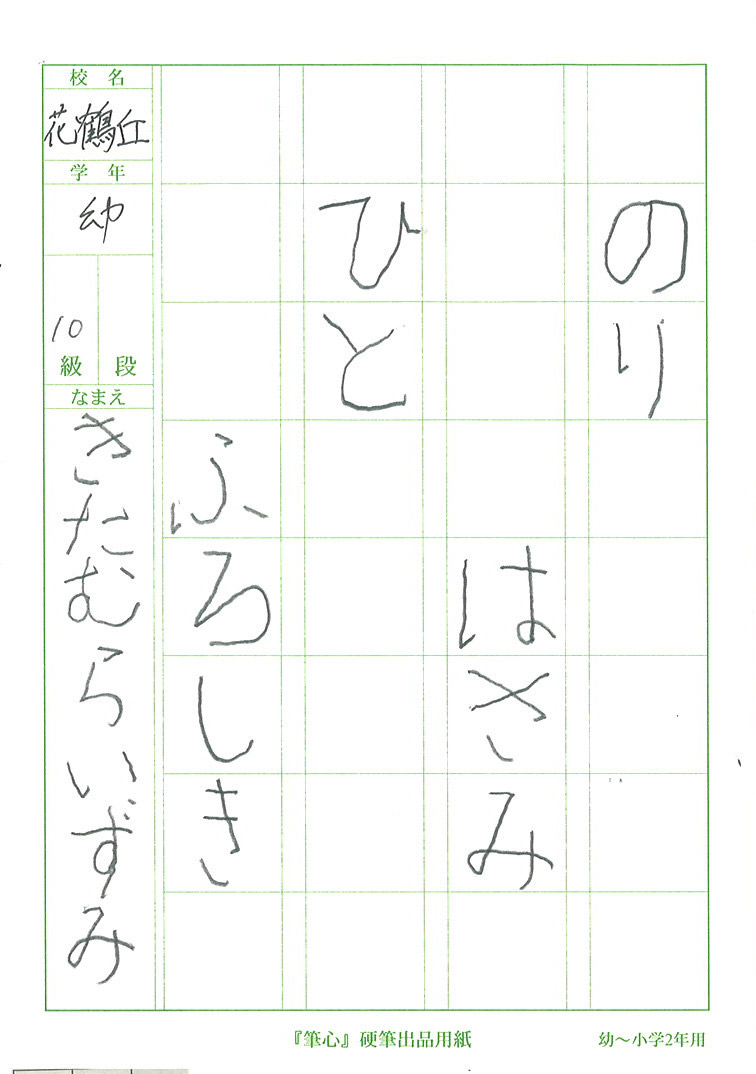 のり
はさみ
ひと
ふろしき
校名
花鶴丘
学年
幼
10
級 段
なまえ
きたむらいずみ
『筆心』硬筆出品用紙
幼～小学2年用